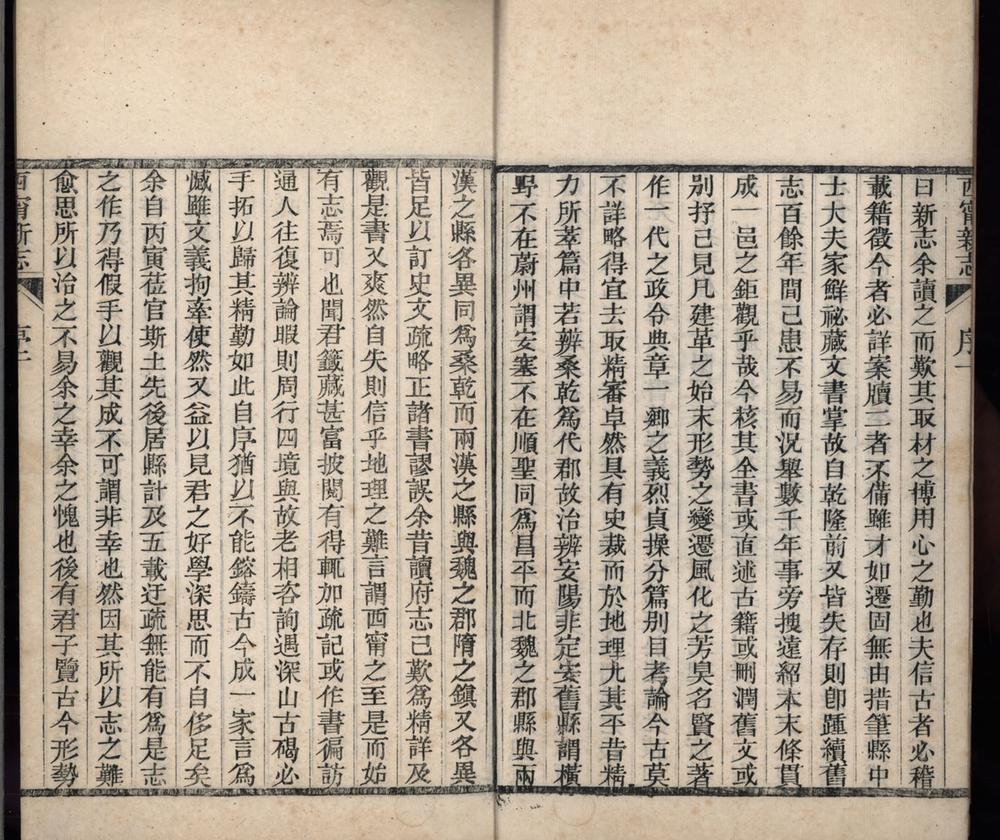 西甯新志
序一
曰新志余讀之而歎其取材之博用心之勤也夫信古者必稽
載籍徵今者必詳案牘二者不備雖才如遷固無由措筆縣中
士大夫家鮮祕藏文書掌故自乾隆前又皆失存則卽踵續舊
志百餘年間己患不易而況舉數千年事旁搜遠紹本末條貫
成一邑之鉅觀乎哉今核其全書或直述古籍或刪潤舊文或
別抒己見凡建革之始末形勢之變遷風化之芳臭名賢之著
作一代之政令典章一鄉之義烈貞操分篇別目考論今古莫
不詳略得宜去取精審卓然具有史裁而於地理尤其平昔精
力所萃篇中若辨桑乾爲代郡故治辨安陽非定安舊縣謂橫
野不在蔚州謂安塞不在順聖同爲昌平而北魏之郡縣與兩
漢之縣各異同爲桑乾而兩漢之縣與魏之郡隋之鎮又各異
皆足以訂史文疏略正諸書謬誤余昔讀府志己歎爲精詳及
觀是書又爽然自失則信乎地理之難言謂西甯之至是而始
有志焉可也聞君籤藏甚富披閱有得輒加疏記或作書徧訪
通人往復辨論暇則周行四境與故老相咨詢遇深山古碣必
手拓以歸其精勤如此自序猶以不能鎔鑄古今成一家言爲
憾雖文義拘牽使然又益以見君之好學深思而不自侈足矣
余自丙寅莅官斯土先後居縣計及五載迂疏無能有爲是志
之作乃得假手以觀其成不可謂非幸也然因其所以志之難
愈思所以治之不易余之幸余之愧也後有君子覽古今形勢
西甯新志
序二